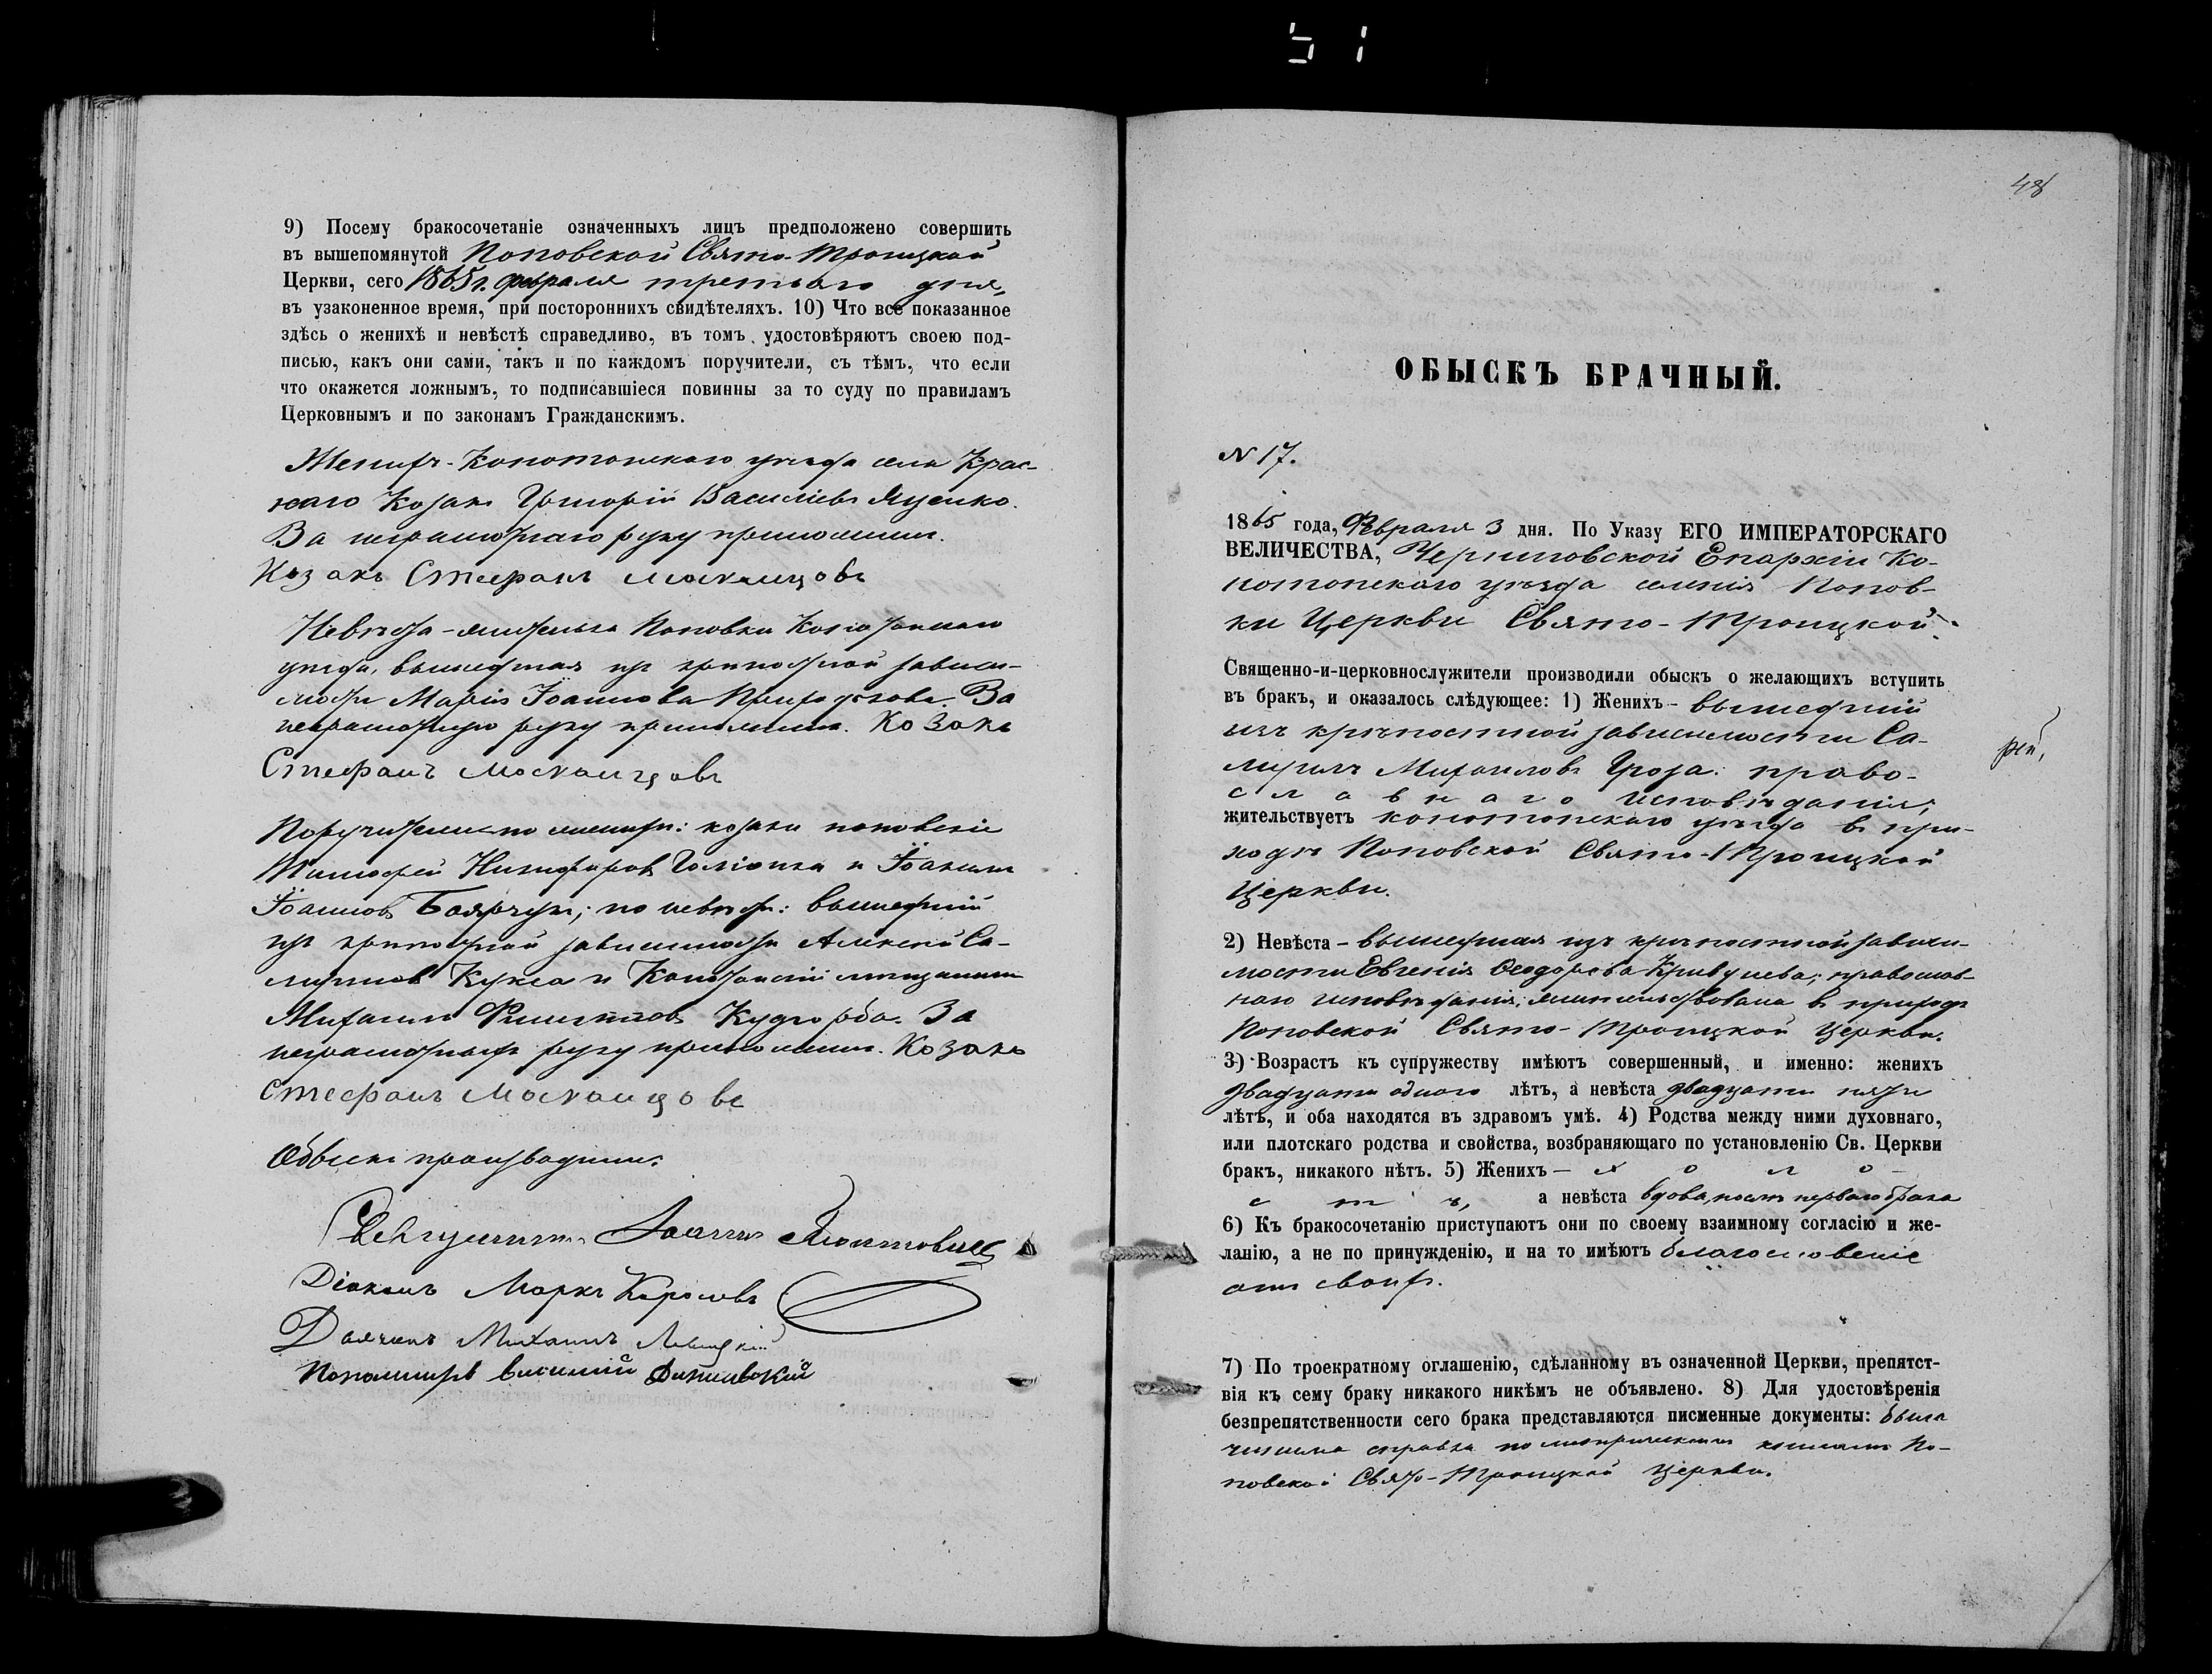 51
9) Посему бракосочетаніе означенныхъ лицъ предположено совершить
въ вышепомянутой Поповской Свято-Троицкой
Церкви, сего 1865 г. февраля третьяго дня,
въ узаконенное время, при постороннихъ свидѣтеляхъ. 10) Что все показанное
здѣсь о женихѣ и невѣстѣ справедливо, въ томъ удостовѣряютъ своею под-
писью, какъ они сами, такъ и по каждомъ поручители, съ тѣмъ, что если
что окажется ложнымъ, то подписавшіеся повинны за то суду по правиламъ
Церковнымъ и по законамъ Гражданскимъ.
Женихъ - Конотопскаго уѣзда села Крас-
наго Козакъ Григорій Васильевъ Яценко.
За неграмотнаго руку приложилъ.
Козакъ Стефанъ Москальцовъ
Невѣста - жителька Поповки Конотопскаго
уѣзда, вышедшая изъ крѣпостной зависи-
мости Марія Іоаннова. За
неграмотную руку приложилъ. Козакъ
Стефанъ Москальцовъ
Поручители по женихѣ: козаки поповскіе
Тимофей Никифоровъ и Іоакимъ
Іоанновъ Боярчукъ; по невѣстѣ: вышедшій
изъ крѣпостной зависимости Алексѣй Са-
муиловъ Кукса и Конотопскій мѣщанинъ
Михаилъ Филипповъ. За
неграмотныхъ руку приложилъ. Козакъ
Стефанъ Москальцовъ
Обыскъ производили:
Священникъ Іоаннъ
Діаконъ Маркъ
Дьячекъ Михаилъ
Пономарь Василій
48
ОБЫСКЪ БРАЧНЫЙ.
N 17.
1865 года, Февраля 3 дня. По Указу ЕГО ИМПЕРАТОРСКАГО
ВЕЛИЧЕСТВА, Черниговской Епархіи Ко-
нотопскаго уѣзда селенія Попов-
ки Церкви Свято-Троицкой
Священно-и-церковнослужители производили обыскъ о желающихъ вступить
въ бракъ, и оказалось слѣдующее: 1) Женихъ - вышедшій
изъ крѣпостной зависимости
Михаиловъ Гроза: право-
славнаго исповѣданія;
жительствуетъ Конотопскаго уѣзда въ при-
ходѣ Поповской Свято-Троицкой
Церкви.
2) Невѣста - вышедшая изъ крѣпостной зависи-
мости Евгенія Ѳеодорова Кривушева; православ-
наго исповѣданія; жительствовала въ приходѣ
Поповской Свято-Троицкой Церкви.
3) Возрастъ къ супружеству имѣютъ совершенный, и именно: женихъ
двадцати одного лѣтъ, а невѣста двадцати пяти
лѣтъ, и оба находятся въ здравомъ умѣ. 4) Родства между ними духовнаго,
или плотскаго родства и свойства, возбраняющаго по установленію Св. Церкви
бракъ, никакого нѣтъ. 5) Женихъ — холо-
стъ, а невѣста вдова, послѣ перваго брака
6) Къ бракосочетанію приступаютъ они по своему взаимному согласію и же-
ланію, а не по принужденію, и на то имѣютъ благословеніе
отъ своихъ.
7) По троекратному оглашенію, сдѣланному въ означенной Церкви, препятст-
вія къ сему браку никакого никѣмъ не объявлено. 8) Для удостовѣренія
безпрепятственности сего брака представляются писменные документы: была
чинима справка по метрическимъ книгамъ По-
повской Свято-Троицкой Церкви.